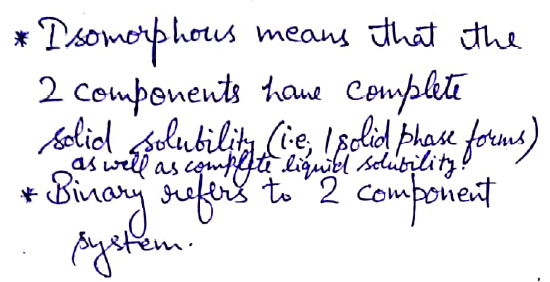 * Isomorphous means that the
2 components have complete
solid solubility (i.e, 1 solid phase forms)
as well as complete liquid solubility.
* Binary refers to 2 component
system.